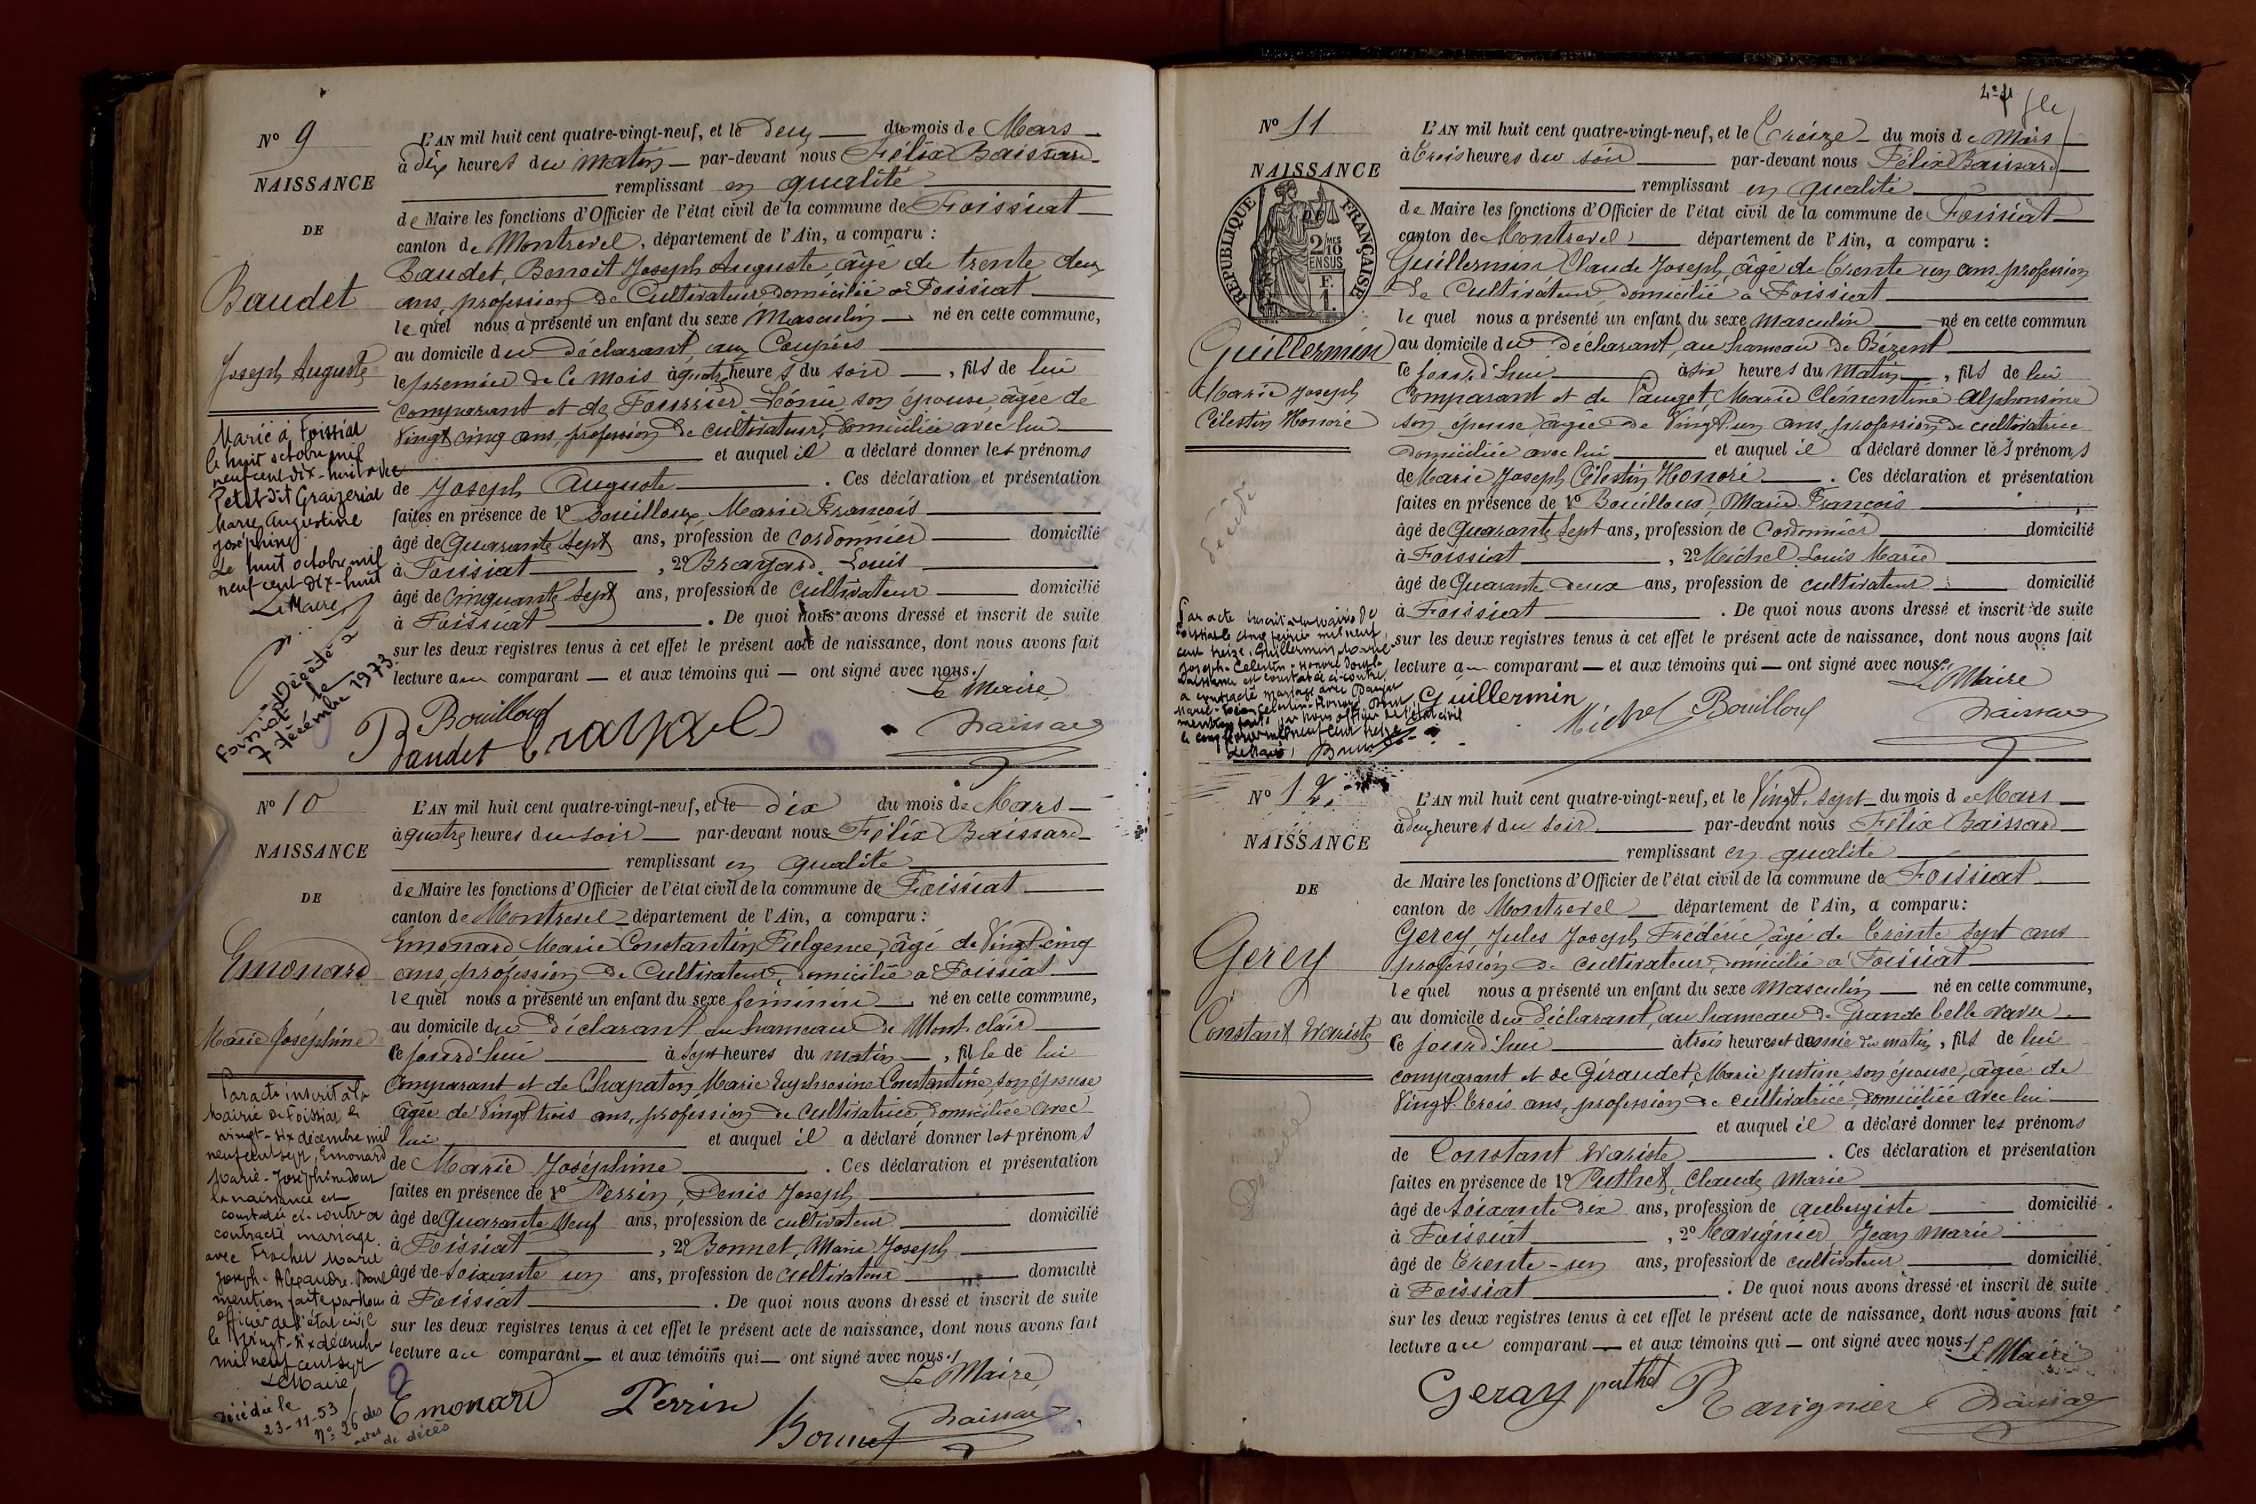 N° 9
NAISSANCE
DE
Baudet
Joseph Auguste
Marié à Foissiat
le huit octobre mil
neuf cent dix-huit avec
Petit dit Graizeriat
Marie Augustine
Joséphine
Le huit octobre mil
neuf cent dix-huit
Le Maire
Décédé à
Foissiat le
7 décembre 1973
L'AN mil huit cent quatre-vingt-neuf, et le deux du mois de Mars
à dix heures du matin par-devant nous Félix Baissard
remplissant en qualité
de Maire les fonctions d'Officier de l'état civil de la commune de Foissiat
canton de Montrevel, département de l'Ain, a comparu :
Baudet, Benoit Joseph Auguste, âgé de trente deux
ans, profession de Cultivateur domicilié à Foissiat
lequel nous a présenté un enfant du sexe Masculin né en cette commune,
au domicile du déclarant, aux Coupées
le premier de ce mois à quatre heures du soir, fils de lui
comparant et de Fourrier Léonie son épouse, âgée de
Vingt cinq ans, profession de cultivateur, domiciliée avec lui
et auquel il a déclaré donner les prénoms
de Joseph Auguste. Ces déclaration et présentation
faites en présence de 1° Bouilloux Marie François
âgé de Quarante Sept ans, profession de Cordonnier domicilié
à Foissiat, 2° Brangard Louis
âgé de Cinquante Sept ans, profession de cultivateur domicilié
à Foissiat. De quoi nous avons dressé et inscrit de suite
sur les deux registres tenus à cet effet le présent acte de naissance, dont nous avons fait
lecture au comparant et aux témoins qui ont signé avec nous.
Le Maire
Bouilloux
Baudet
Baissard
N° 10
NAISSANCE
DE
Emonard
Marie Joséphine
Par acte inscrit à la
Mairie de Foissiat le
vingt-six décembre mil
neuf cent sept, Emonard
Marie-Joséphine dont
la naissance est
constatée ci-contre a
contracté mariage
avec Frachet Marie
Joseph-Alexandre. Dont
mention faite par Nous
officier de l'état civil
le vingt-six décembre
mil neuf cent sept
Le Maire
Décédée le
23-11-53
N° 26 des
actes de décès
L'AN mil huit cent quatre-vingt-neuf, et le dix du mois de Mars
à quatre heures du soir par-devant nous Félix Baissard
remplissant en qualité
de Maire les fonctions d'Officier de l'état civil de la commune de Foissiat
canton de Montrevel département de l'Ain, a comparu :
Emonard Marie Constantin Fulgence, âgé de Vingt cinq
ans, profession de Cultivateur, domicilié à Foissiat
lequel nous a présenté un enfant du sexe féminin né en cette commune,
au domicile du déclarant au hameau de Mont clair
ce jourd'hui à Sept heures du matin, fille de lui
comparant et de Chapaton Marie Euphrosine Constantine, son épouse
âgée de Vingt trois ans, profession de cultivatrice domiciliée avec
lui et auquel il a déclaré donner les prénoms
de Marie Joséphine. Ces déclaration et présentation
faites en présence de 1° Perrin, Denis Joseph
âgé de Quarante Neuf ans, profession de cultivateur domicilié
à Foissiat, 2° Bonnet, Marie Joseph
âgé de Soixante un ans, profession de cultivateur domicilié
à Foissiat. De quoi nous avons dressé et inscrit de suite
sur les deux registres tenus à cet effet le présent acte de naissance, dont nous avons fait
lecture au comparant et aux témoins qui ont signé avec nous.
Le Maire
Emonard Perrin
Bonnet Baissard
N° 11
NAISSANCE
DE
REPUBLIQUE FRANÇAISE
2/10 EN SUS
1 F.
Guillermin
Marie Joseph
Célestin Honoré
décédé
Par acte inscrit à la mairie de
Foissiat le cinq février mil neuf
cent treize, Guillermin Marie
Joseph-Célestin-Honoré dont la
naissance est constatée ci-contre
a contracté mariage avec
Dont
mention faite par Nous officier de l'état civil
le cinq février mil neuf cent treize
Le Maire
L'AN mil huit cent quatre-vingt-neuf, et le Treize du mois de Mars
à trois heures du soir par-devant nous Félix Baissard
remplissant en qualité
de Maire les fonctions d'Officier de l'état civil de la commune de Foissiat
canton de Montrevel, département de l'Ain, a comparu :
Guillermin Claude Joseph, âgé de trente un ans, profession
de Cultivateur, domicilié à Foissiat
lequel nous a présenté un enfant du sexe Masculin né en cette commun
au domicile du déclarant, au hameau de Bézent
ce jourd'hui à six heures du Matin, fils de lui
comparant et de Pauget Marie Clémentine Alphonsine
son épouse âgée de Vingt un ans, profession de cultivatrice
domiciliée avec lui et auquel il a déclaré donner les prénoms
de Marie Joseph Célestin Honoré. Ces déclaration et présentation
faites en présence de 1° Bouilloux, Marie François
âgé de Quarante Sept ans, profession de Cordonnier domicilié
à Foissiat, 2° Michel Louis Marie
âgé de Quarante deux ans, profession de cultivateur domicilié
à Foissiat. De quoi nous avons dressé et inscrit de suite
sur les deux registres tenus à cet effet le présent acte de naissance, dont nous avons fait
lecture au comparant et aux témoins qui ont signé avec nous.
Le Maire
Guillermin
Michel Bouilloux
Baissard
N° 12
NAISSANCE
DE
Gerey
Constant Évariste
Décédé
L'AN mil huit cent quatre-vingt-neuf, et le Vingt Sept du mois de Mars
à deux heures du soir par-devant nous Félix Baissard
remplissant en qualité
de Maire les fonctions d'Officier de l'état civil de la commune de Foissiat
canton de Montrevel département de l'Ain, a comparu :
Gerey, Jules Joseph Frédéric âgé de trente Sept ans
profession de cultivateur, domicilié à Foissiat
lequel nous a présenté un enfant du sexe Masculin né en cette commune,
au domicile du déclarant, au hameau de Grande belle vavre
ce jourd'hui à trois heures et demie du matin, fils de lui
comparant et de Giraudet, Marie Justine son épouse, âgée de
Vingt trois ans, profession de cultivatrice, domiciliée avec lui
et auquel il a déclaré donner les prénoms
de Constant Évariste. Ces déclaration et présentation
faites en présence de 1° Puthet, Claude Marie
âgé de soixante dix ans, profession de aubergiste domicilié
à Foissiat, 2° Ravignier, Jean Marie
âgé de trente-un ans, profession de cultivateur domicilié
à Foissiat. De quoi nous avons dressé et inscrit de suite
sur les deux registres tenus à cet effet le présent acte de naissance, dont nous avons fait
lecture au comparant et aux témoins qui ont signé avec nous.
Le Maire
Geray puthet Ravignier Baissard